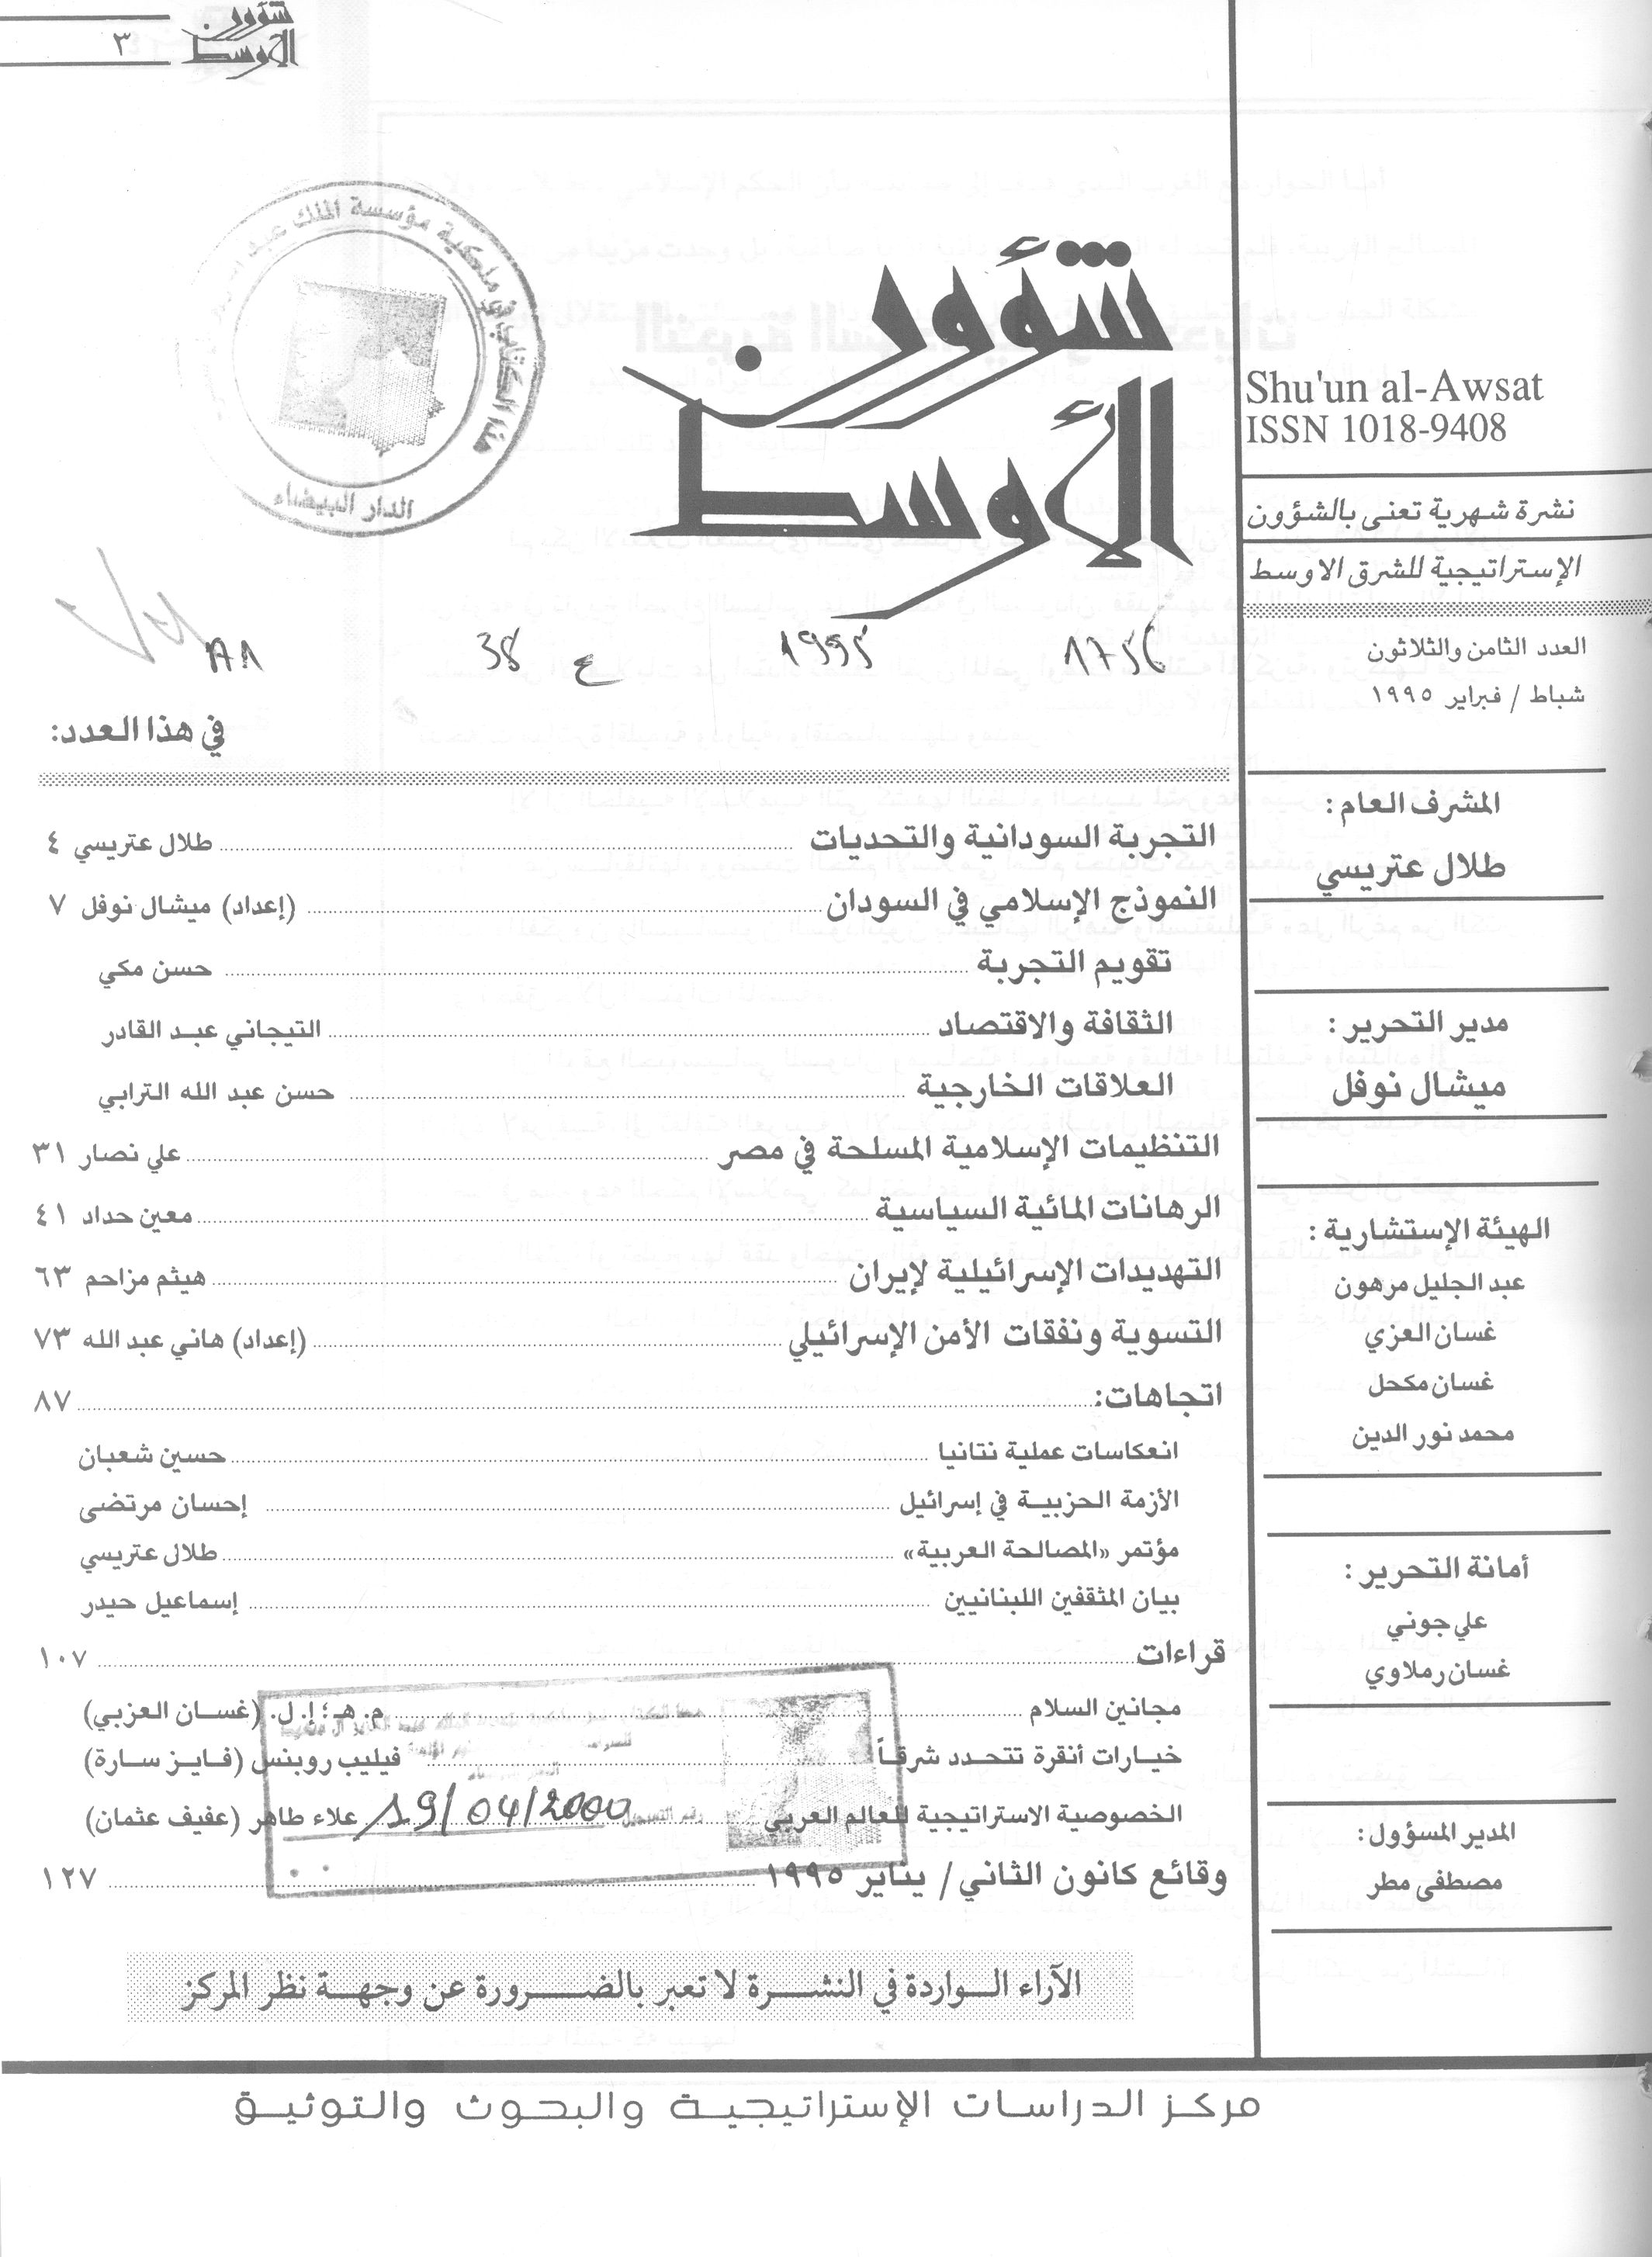 شؤون
الأوسط
٣
شؤون
الأوسط
Shu'un al-Awsat
ISSN 1018-9408
نشرة شهرية تعنى بالشؤون
الإستراتيجية للشرق الاوسط
العدد الثامن والثلاثون
شباط / فبراير ١٩٩٥
المشرف العام:
طلال عتريسي
مدير التحرير:
ميشال نوفل
الهيئة الإستشارية:
عبد الجليل مرهون
غسان العزي
غسان مكحل
محمد نور الدين
أمانة التحرير:
علي جوني
غسان رملاوي
المدير المسؤول:
مصطفى مطر
هذا الكتاب في ملكية مؤسسة الملك عبد
الدار البيضاء
1756 1995 ع 38
في هذا العدد:
التجربة السودانية والتحديات ... طلال عتريسي ٤
النموذج الإسلامي في السودان ... (إعداد) ميشال نوفل ٧
تقويم التجربة ... حسن مكي
الثقافة والاقتصاد ... التيجاني عبد القادر
العلاقات الخارجية ... حسن عبد الله الترابي
التنظيمات الإسلامية المسلحة في مصر ... علي نصار ٣١
الرهانات المائية السياسية ... معين حداد ٤١
التهديدات الإسرائيلية لإيران ... هيثم مزاحم ٦٣
التسوية ونفقات الأمن الإسرائيلي ... (إعداد) هاني عبد الله ٧٣
اتجاهات: ... ٨٧
انعكاسات عملية نتانيا ... حسين شعبان
الأزمة الحزبية في إسرائيل ... إحسان مرتضى
مؤتمر «المصالحة العربية» ... طلال عتريسي
بيان المثقفين اللبنانيين ... إسماعيل حيدر
قراءات ... ١٠٧
مجانين السلام ... م. هـ؛ إ. ل. (غسان العزبي)
خيارات أنقرة تتحدد شرقاً ... فيليب روبنس (فايز سارة)
الخصوصية الاستراتيجية للعالم العربي ... علاء طاهر (عفيف عثمان)
رقم التسجيل
19/04/2000
وقائع كانون الثاني / يناير ١٩٩٥ ... ١٢٧
الآراء الواردة في النشرة لا تعبر بالضرورة عن وجهة نظر المركز
مركز الدراسات الإستراتيجية والبحوث والتوثيق